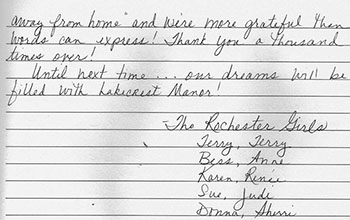 away from home and we're more grateful than
words can express! Thank you a thousand
times over!
Until next time... our dreams will be
filled with Lakecrest Manor!
-The Rochester Girls
Terry, Terry
Bess, Anne
Karen, Renée
Sue, Judi
Donna, Sherri